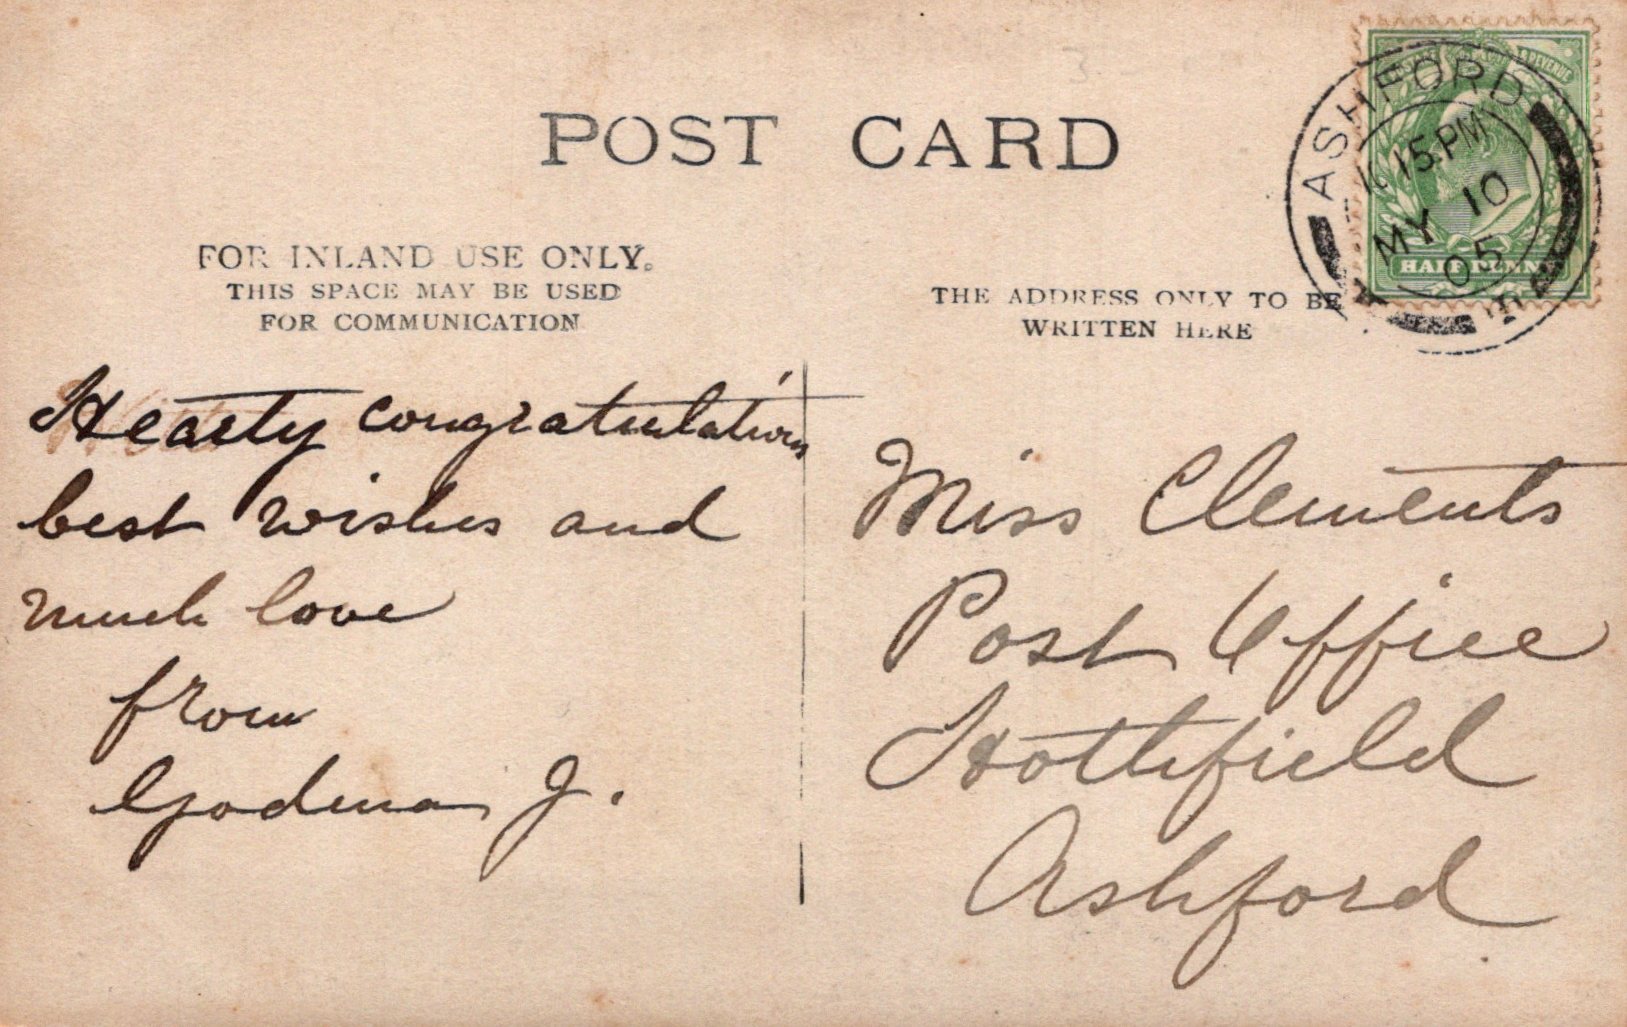 POST CARD
FOR INLAND USE ONLY.
THIS SPACE MAY BE USED
FOR COMMUNICATION
THE ADDRESS ONLY TO BE
WRITTEN HERE
ASHFORD
15 PM
MY 10
05
HALFPENNY
Hearty congratulations
best wishes and
much love
from
J.
Miss Clements
Post Office
Hothfield
Ashford